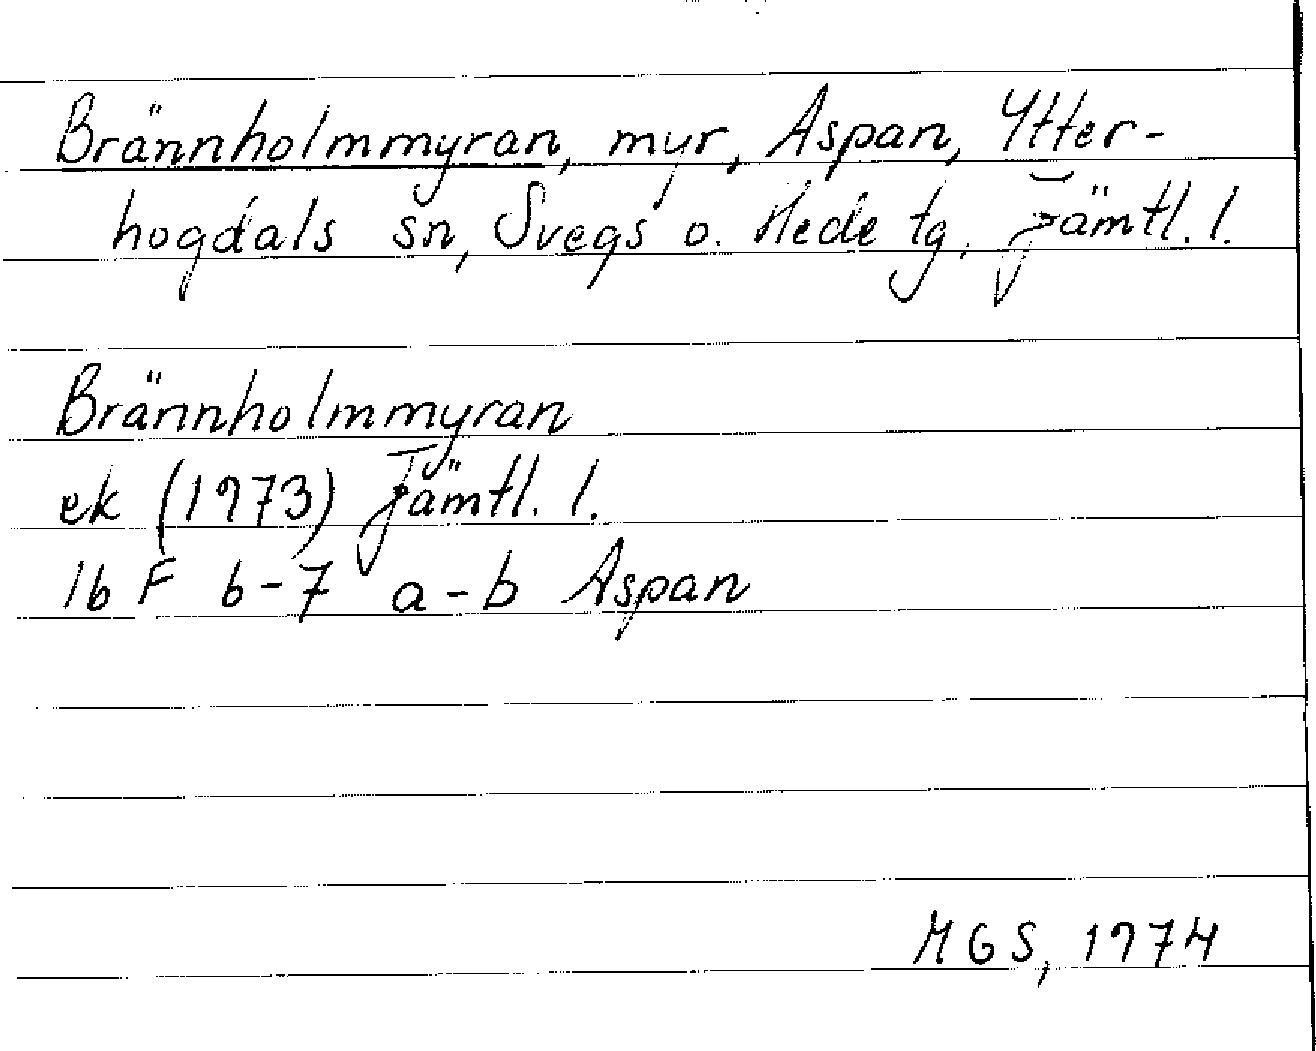 Brännholmmyran, myr, Aspan, Ytter-
hogdals sn, Svegs o. Hede tg. Jämtl. l.
Brännholmmyran
ek (1973) Jämtl. l.
16 F 6-7 a-b Aspan
MGS, 1974